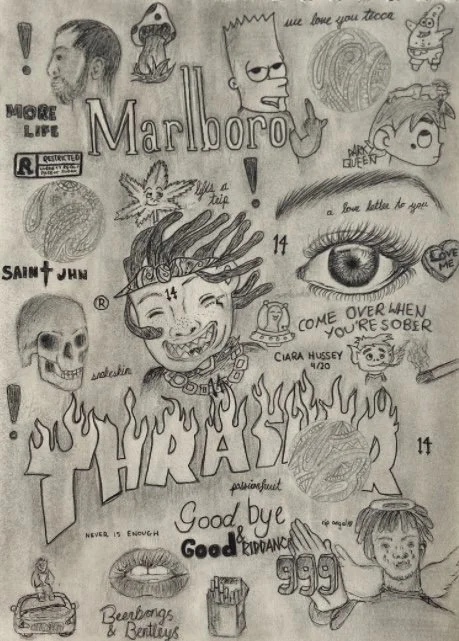 we love you tecca
Marlboro
MORE
LIFE
R RESTRICTED
DARK
QUEEN
life's a
trip
a love letter to you
14
LOVE
ME
SAINT JHN
14
®
COME OVER WHEN
YOU'RE SOBER
CIARA HUSSEY
4/20
snakeskin
14
THRASHER
14
passionfruit
Good bye
& Good RIDDANCE
NEVER IS ENOUGH
rip angel
999
Beerbongs
& Bentleys